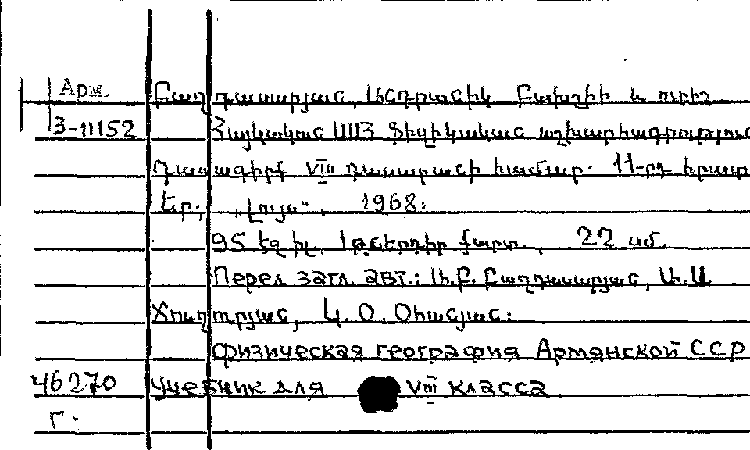 Арм. Բաղդասարյան, Անդրանիկ Բախշիի և ուրիշ
3-11152 Հայկական ՍՍՀ Ֆիզիկական աշխարհագրություն
Դասագիրք VIII դասարանի համար. 11-րդ հրատ
Եր., „Լույս“, 1968.
95 էջ իլ. 1 թերթիր քարտ., 22 սմ.
Перел загл. авт.: Ա.Բ. Բաղդասարյան, Ա.Ա
Հ. Օ. Օհանյան:
Физическая география Армянской ССР
46270 Учебник для VIII класса
Г.